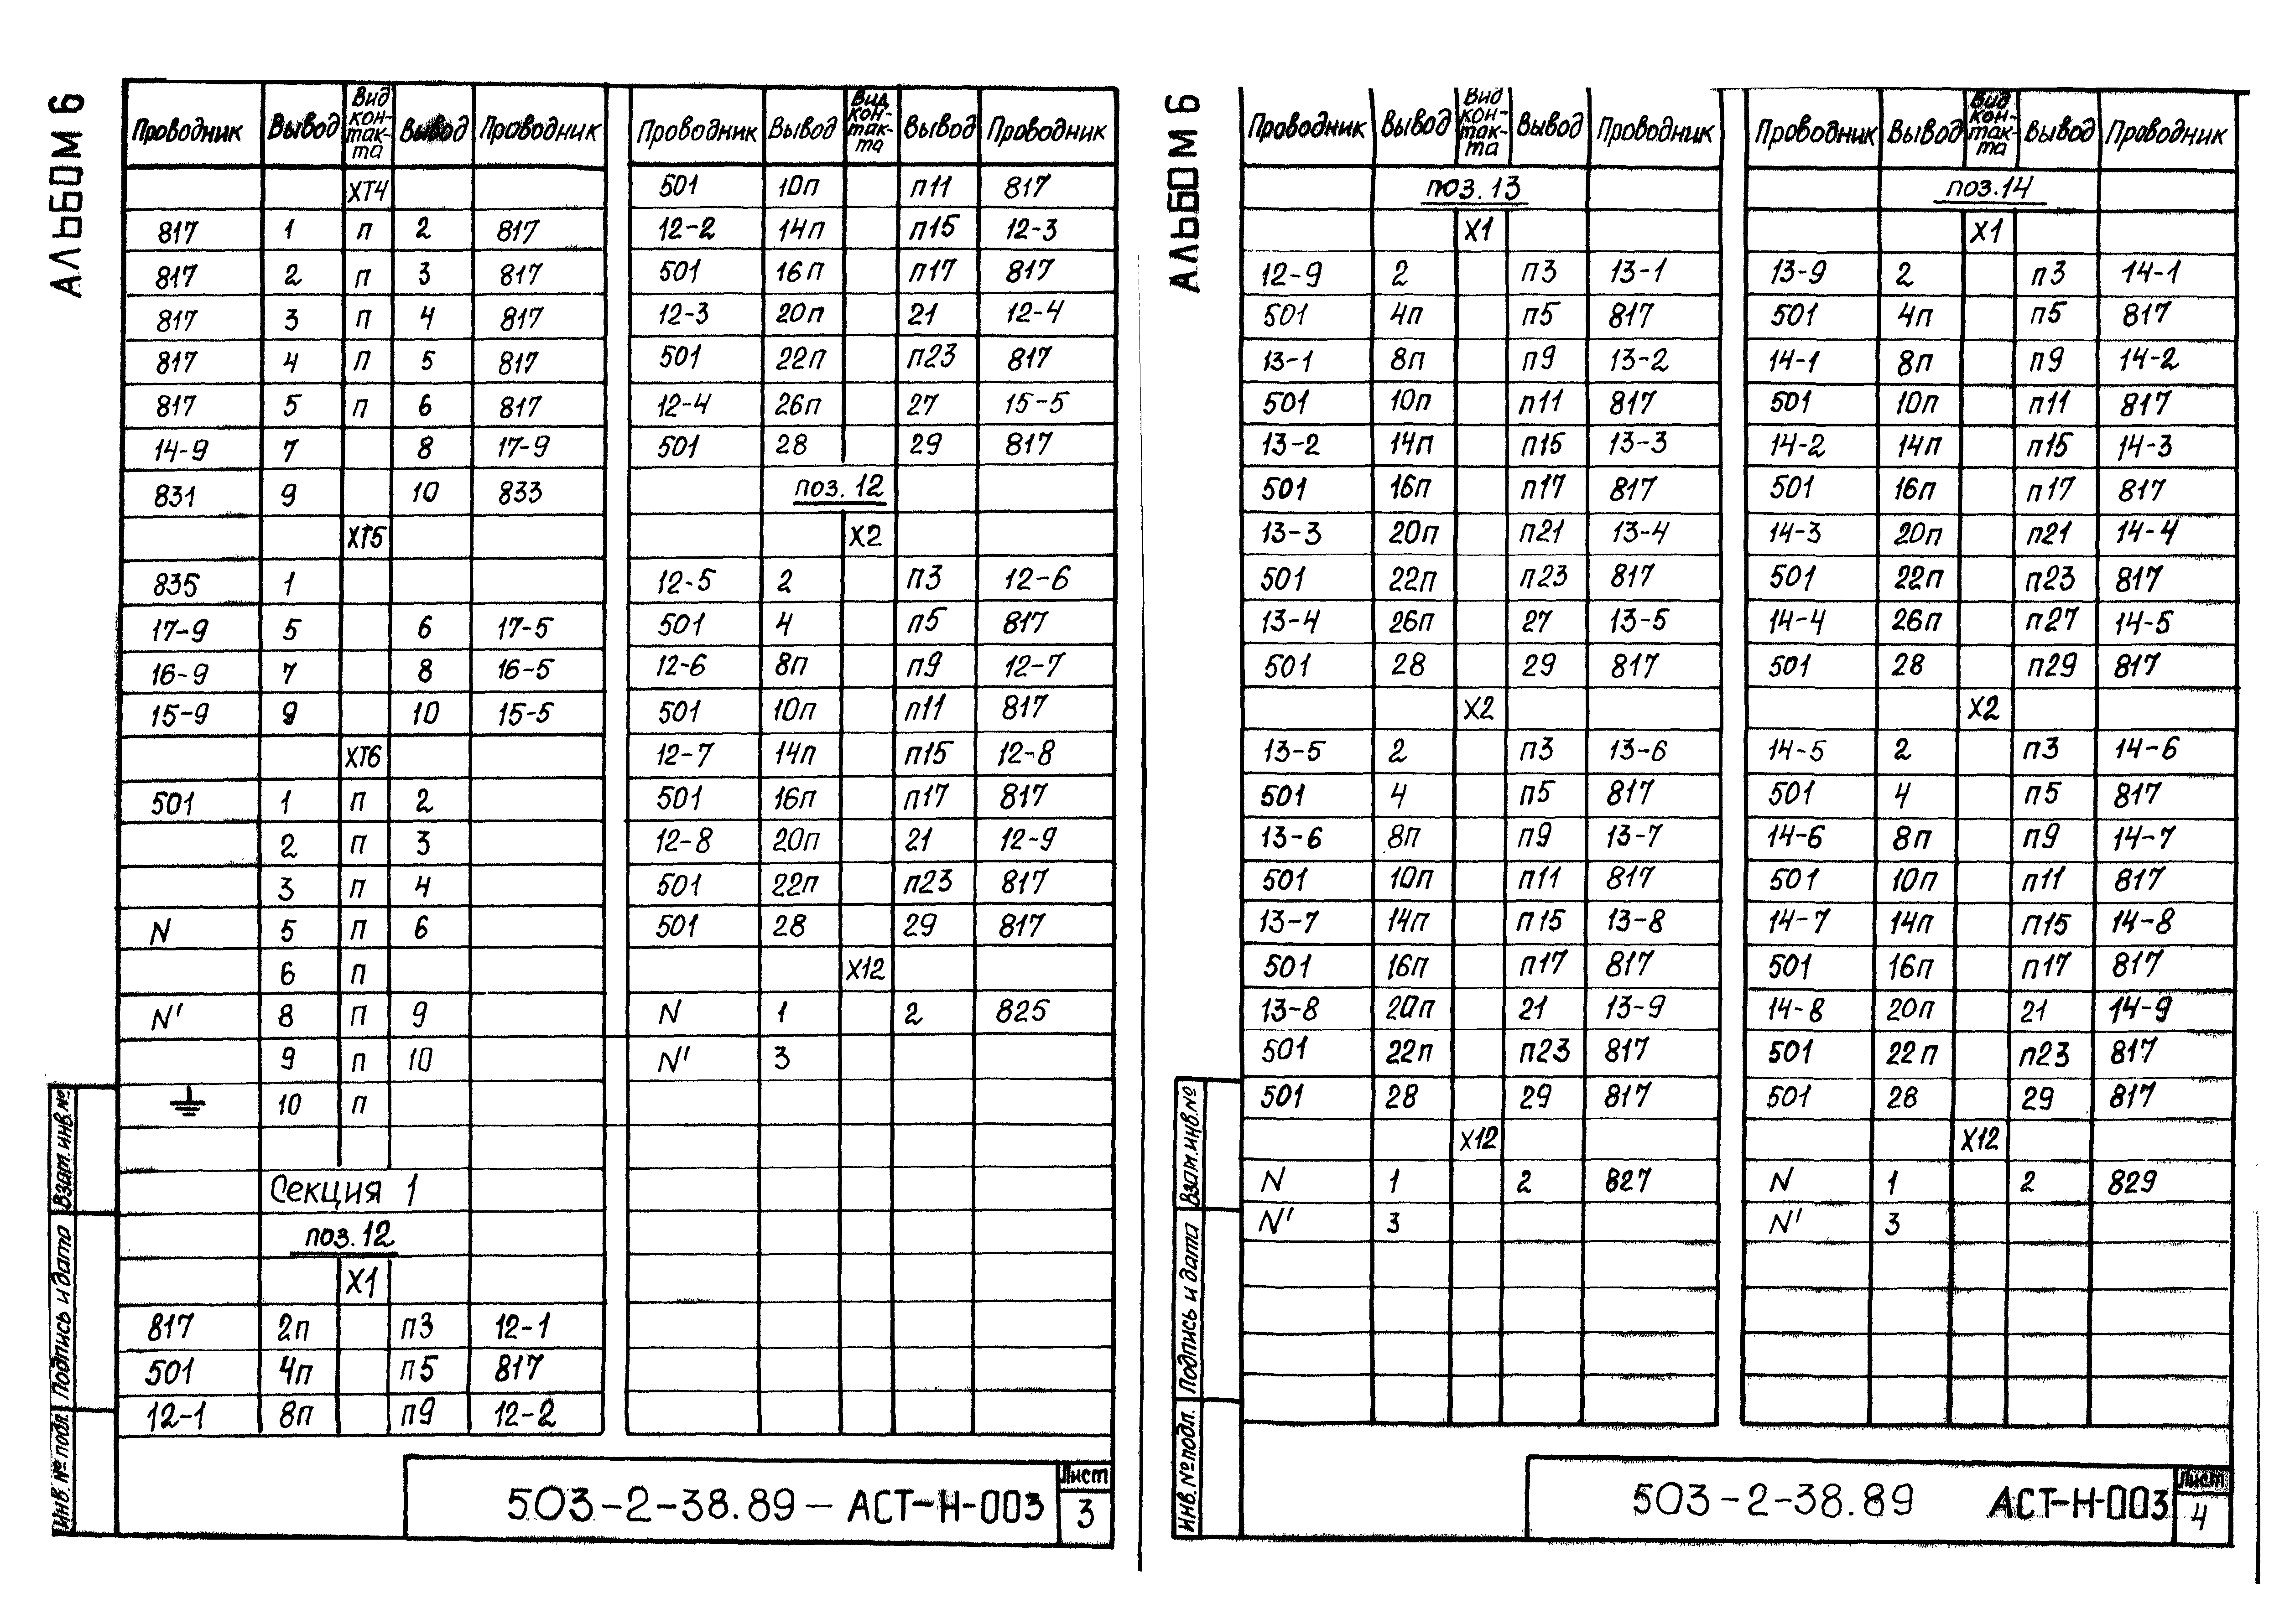 АЛЬБОМ 6
Проводник Вывод Вид кон-так-та Вывод Проводник
ХТ4
817 1 п 2 817
817 2 п 3 817
817 3 п 4 817
817 4 п 5 817
817 5 п 6 817
14-9 7 8 17-9
831 9 10 833
ХТ5
835 1
17-9 5 6 17-5
16-9 7 8 16-5
15-9 9 10 15-5
ХТ6
501 1 п 2
2 п 3
3 п 4
N 5 п 6
6 п
N' 8 п 9
9 п 10
10 п
Секция 1
поз.12
Х1
817 2п п3 12-1
501 4п п5 817
12-1 8п п9 12-2
Проводник Вывод Вид кон-так-та Вывод Проводник
501 10п п11 817
12-2 14п п15 12-3
501 16п п17 817
12-3 20п 21 12-4
501 22п п23 817
12-4 26п 27 15-5
501 28 29 817
поз. 12
Х2
12-5 2 п3 12-6
501 4 п5 817
12-6 8п п9 12-7
501 10п п11 817
12-7 14п п15 12-8
501 16п п17 817
12-8 20п 21 12-9
501 22п п23 817
501 28 29 817
Х12
N 1 2 825
N' 3
Взам.инв.№
Подпись и дата
Инв.№ подл.
503-2-38.89 - АСТ-Н-003
Лист
3
АЛЬБОМ 6
Проводник Вывод Вид кон-так-та Вывод Проводник
поз.13
Х1
12-9 2 п3 13-1
501 4п п5 817
13-1 8п п9 13-2
501 10п п11 817
13-2 14п п15 13-3
501 16п п17 817
13-3 20п п21 13-4
501 22п п23 817
13-4 26п 27 13-5
501 28 29 817
Х2
13-5 2 п3 13-6
501 4 п5 817
13-6 8п п9 13-7
501 10п п11 817
13-7 14п п15 13-8
501 16п п17 817
13-8 20п 21 13-9
501 22п п23 817
501 28 29 817
Х12
N 1 2 827
N' 3
Проводник Вывод Вид кон-так-та Вывод Проводник
поз.14
Х1
13-9 2 п3 14-1
501 4п п5 817
14-1 8п п9 14-2
501 10п п11 817
14-2 14п п15 14-3
501 16п п17 817
14-3 20п п21 14-4
501 22п п23 817
14-4 26п п27 14-5
501 28 п29 817
Х2
14-5 2 п3 14-6
501 4 п5 817
14-6 8п п9 14-7
501 10п п11 817
14-7 14п п15 14-8
501 16п п17 817
14-8 20п 21 14-9
501 22п п23 817
501 28 29 817
Х12
N 1 2 829
N' 3
Взам.инв.№
Подпись и дата
Инв.№ подл.
503-2-38.89 АСТ-Н-003
Лист
4